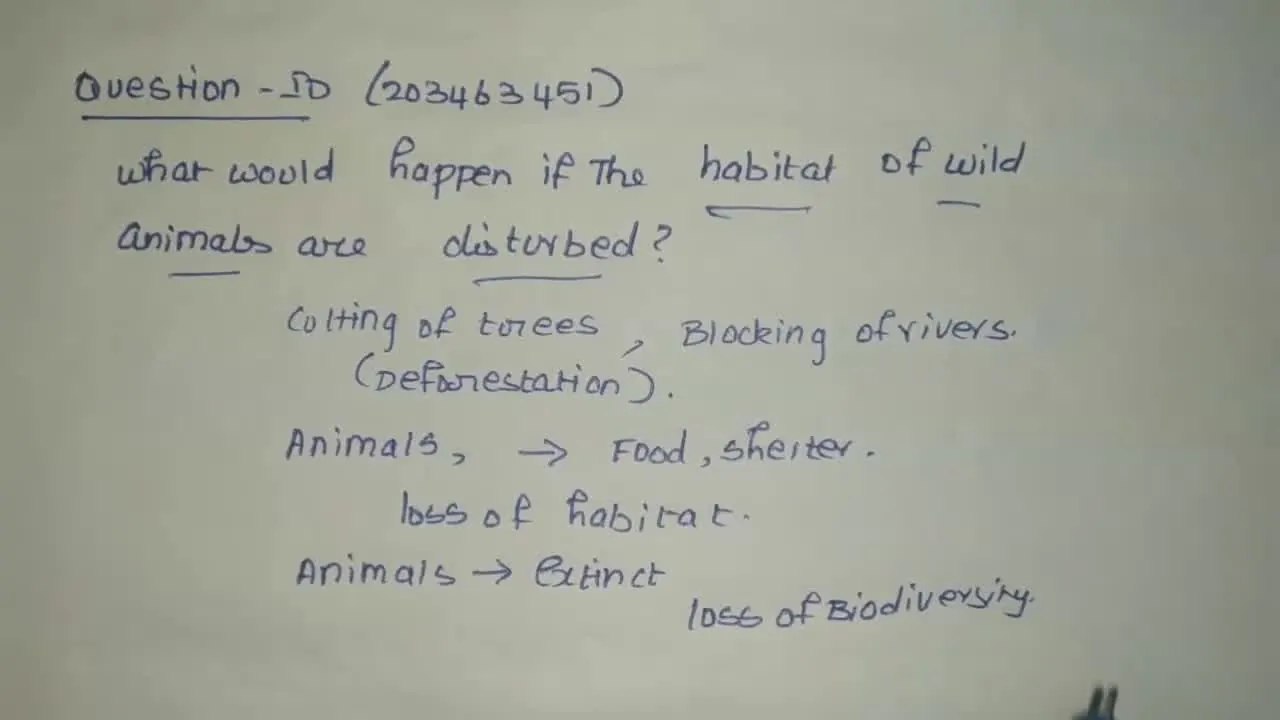 Question - ID (203463451)
what would happen if The habitat of wild
animals are disturbed?
Cutting of trees, Blocking of rivers.
(Deforestation).
Animals, → Food, shelter.
loss of habitat.
Animals → Extinct
loss of Biodiversity.